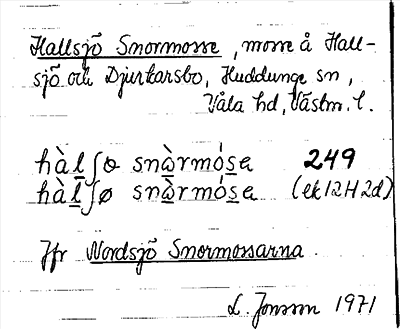 Hallsjö Snormosse, mosse å Hall-
sjö och Djurkarsbo, Huddunge sn,
Våla hd, Västm. l.
hàl̲ʃɵ snɑ̲̀rmós̲a 249
hàl̲ʃø snɑ̲̀rmós̲a (ek 12H2d)
Jfr Nordsjö Snormossarna
L. Jonsson 1971